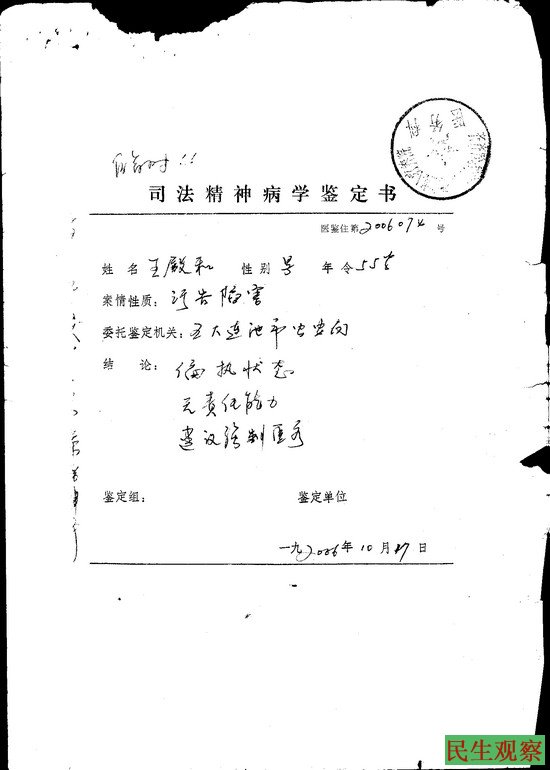 司法精神病学鉴定书
医鉴住第2006074号
姓名 王殿和 性别 男 年令 55岁
案情性质: 诬告陷害
委托鉴定机关: 五大连池市公安局
结论: 偏执状态
无责任能力
建议强制医疗
鉴定组: 鉴定单位
一九2006年10月27日
民生观察